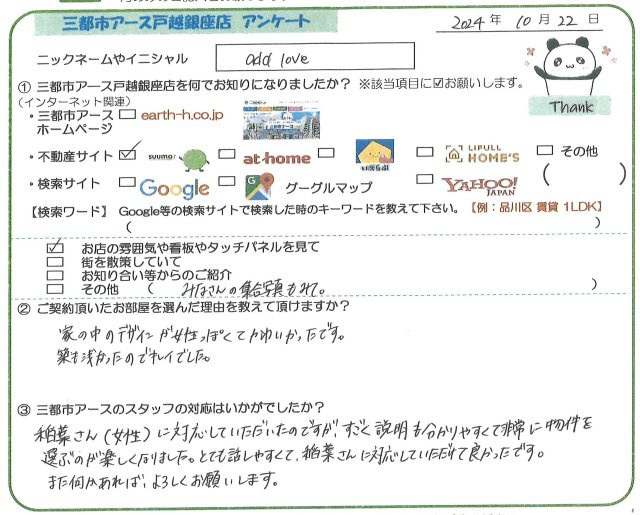 三都市アース戸越銀座店 アンケート
2024年 10月 22日
ニックネームやイニシャル add love
① 三都市アース戸越銀座店を何でお知りになりましたか？ ※該当項目に☑お願いします。
(インターネット関連)
Thank
・三都市アース ホームページ □ earth-h.co.jp
・不動産サイト ☑ suumo □ at-home □ □ LIFULL HOME'S □ その他
・検索サイト □ Google □ グーグルマップ □ YAHOO! JAPAN ( )
【検索ワード】 Google等の検索サイトで検索した時のキーワードを教えて下さい。【例：品川区 賃貸 1LDK】
( )
☑ お店の雰囲気や看板やタッチパネルを見て
□ 街を散策していて
□ お知り合い等からのご紹介
□ その他 ( みなさんの集合写真もみて。 )
② ご契約頂いたお部屋を選んだ理由を教えて頂けますか？
家の中のデザインが女性っぽくてかわいかったです。
築も浅かったのでキレイでした。
③ 三都市アースのスタッフの対応はいかがでしたか？
稲葉さん(女性)に対応していただいたのですが、すごく説明も分かりやすくて非常に物件を
選ぶのが楽しくなりました。とても話しやすくて、稲葉さんに対応していただけて良かったです。
また何かあれば、よろしくお願いします。